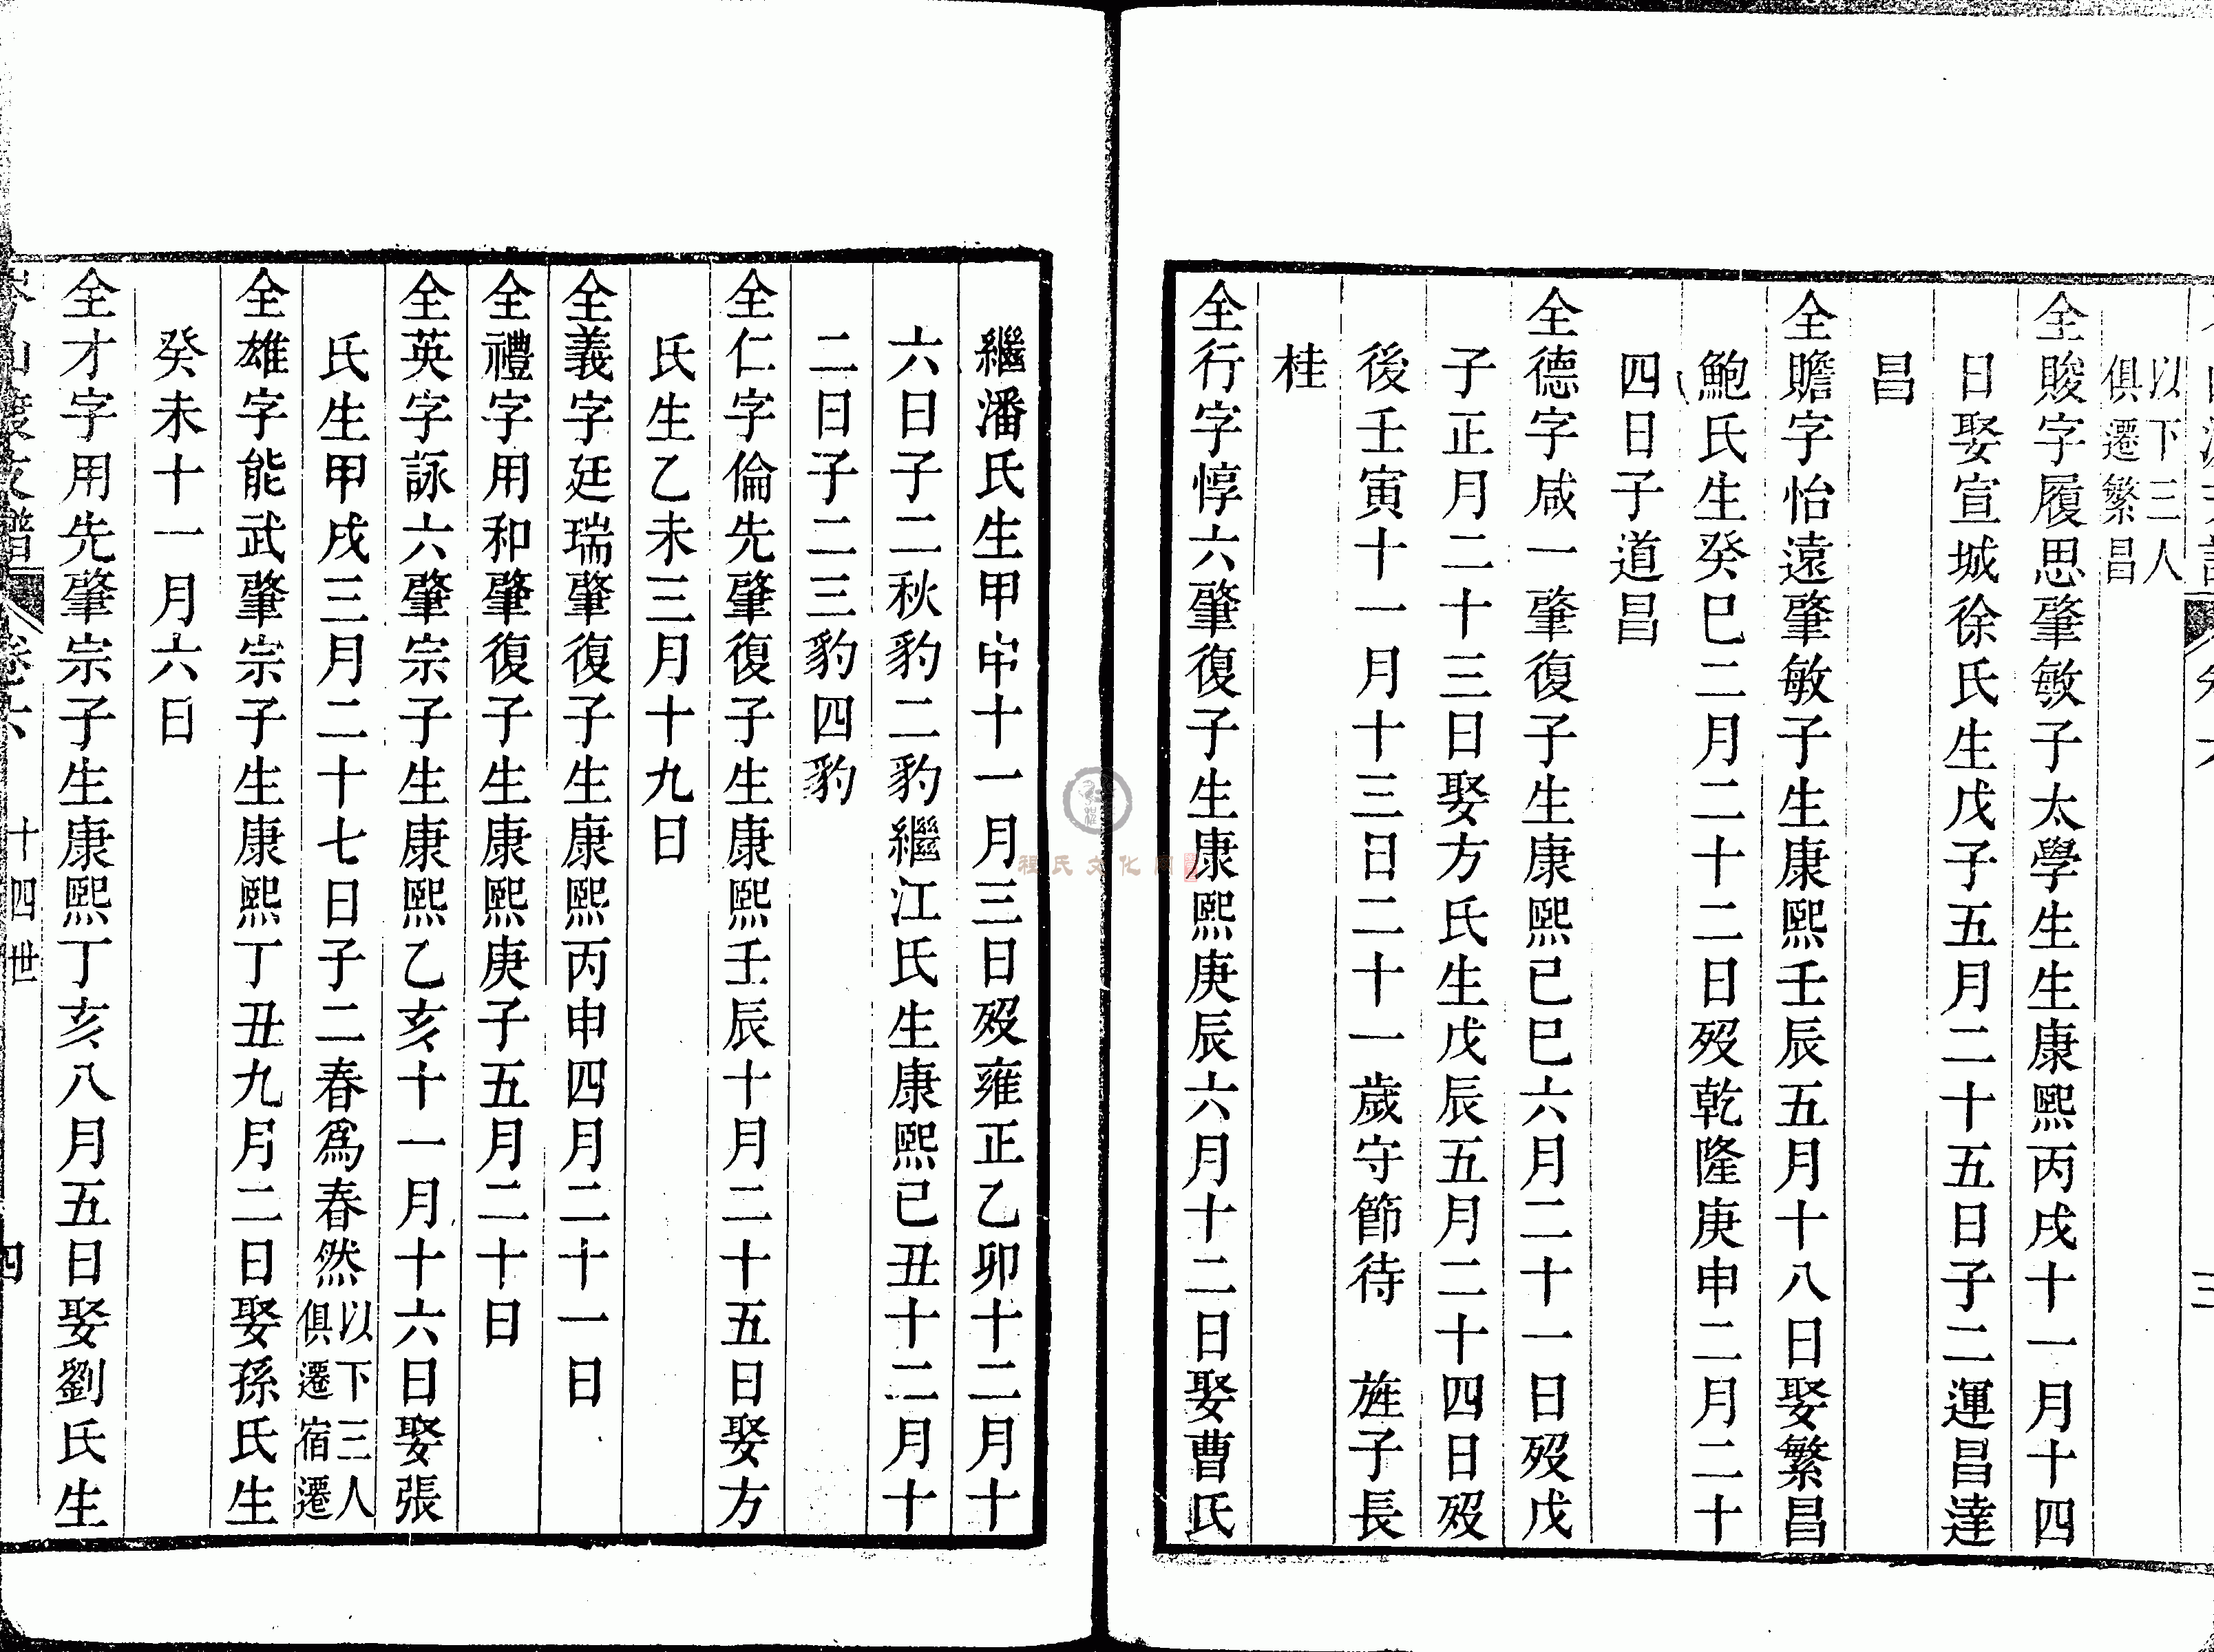 以下三人
俱遷繁昌
全賧字履思肇敏子太學生生康熙丙戌十一月十四
日娶宣城徐氏生戊子五月二十五日子二運昌達
昌
全贍字怡遠肇敏子生康熙壬辰五月十八日娶繁昌
鮑氏生癸巳二月二十二日歿乾隆庚申二月二十
四日子道昌
全德字咸一肇復子生康熙己巳六月二十一日歿戊
子正月二十三日娶方氏生戊辰五月二十四日歿
後壬寅十一月十三日二十一歲守節待 旌子長
桂
全行字惇六肇復子生康熙庚辰六月十二日娶曹氏
繼潘氏生甲申十一月三日歿雍正乙卯十二月十
六日子二秋豹二豹繼江氏生康熙己丑十二月十
二日子二三豹四豹
全仁字倫先肇復子生康熙壬辰十月二十五日娶方
氏生乙未三月十九日
全義字廷瑞肇復子生康熙丙申四月二十一日
全禮字用和肇復子生康熙庚子五月二十日
全英字詠六肇宗子生康熙乙亥十一月十六日娶張
氏生甲戌三月二十七日子二春爲春然以下三人
俱遷宿遷
全雄字能武肇宗子生康熙丁丑九月二日娶孫氏生
癸未十一月六日
全才字用先肇宗子生康熙丁亥八月五日娶劉氏生
支譜 卷六 十四世 四
程氏文化網